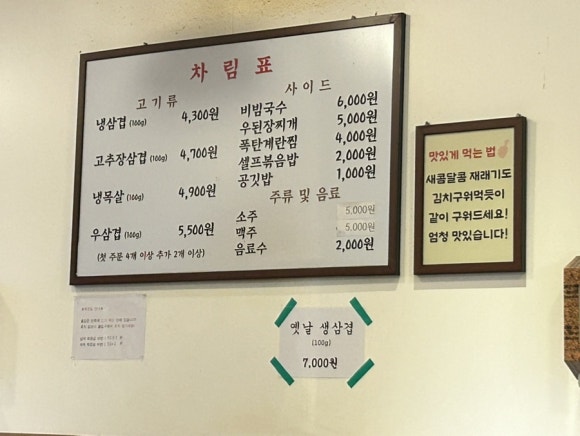 차림표
고기류
냉삼겹 (100g) 4,300원
고추장삼겹 (100g) 4,700원
냉목살 (100g) 4,900원
우삼겹 (100g) 5,500원
(첫 주문 4개 이상 추가 2개 이상)
사이드
비빔국수 6,000원
우된장찌개 5,000원
폭탄계란찜 4,000원
셀프볶음밥 2,000원
공깃밥 1,000원
주류 및 음료
소주 5,000원
맥주 5,000원
음료수 2,000원
맛있게 먹는 법
새콤달콤 재래기도
김치구워먹듯이
같이 구워드세요!
엄청 맛있습니다!
옛날 생삼겹
(100g)
7,000원